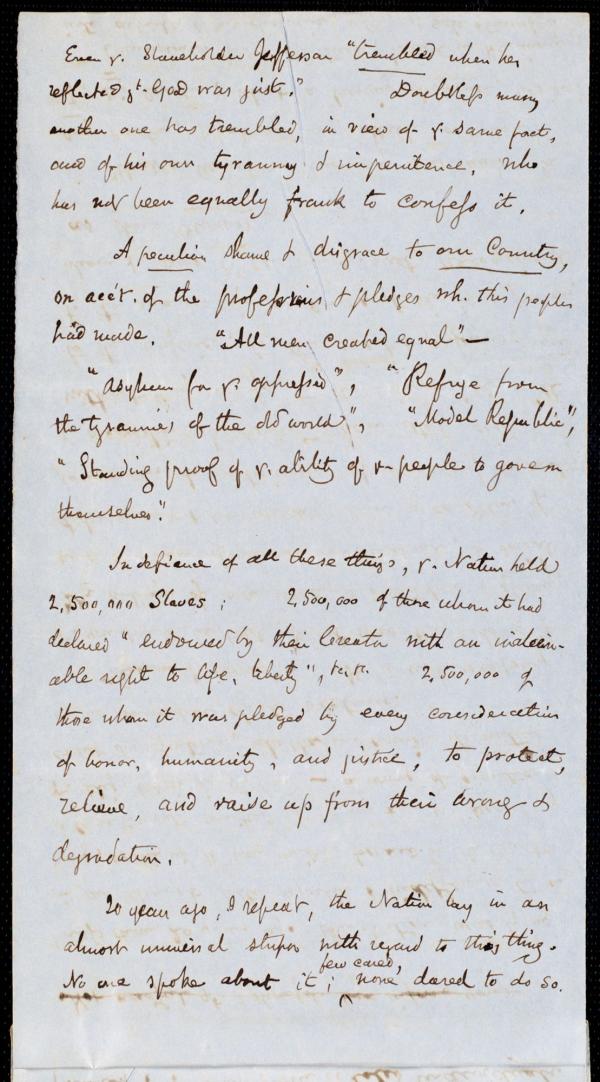 Even y. Slaveholder Jefferson "trembled when he
reflected yt. God was just."    Doubtless many
another one has trembled, in view of y. same fact,
and of his own tyranny & impenitence, who
has not been equally frank to confess it.
A peculiar shame & disgrace to our Country,
on acc't. of the professions & pledges wh. this people
had made.    "All men created equal" —
"Asylum for y. oppressed", "Refuge from
the tyrannies of the old world", "Model Republic",
"Standing proof of y. ability of y. people to govern
themselves".
In defiance of all these things, y. Nation held
2,500,000 Slaves;    2,500,000 of those whom it had
declared "endowed by their Creator with an inalien-
able right to life, liberty", &c. &c.    2,500,000 of
those whom it was pledged by every consideration
of honor, humanity, and justice, to protect,
relieve, and raise up from their wrong &
degradation.
20 years ago, I repeat, the Nation lay in an
almost universal stupor with regard to this thing.
few cared,
No one spoke about it; none dared to do so.